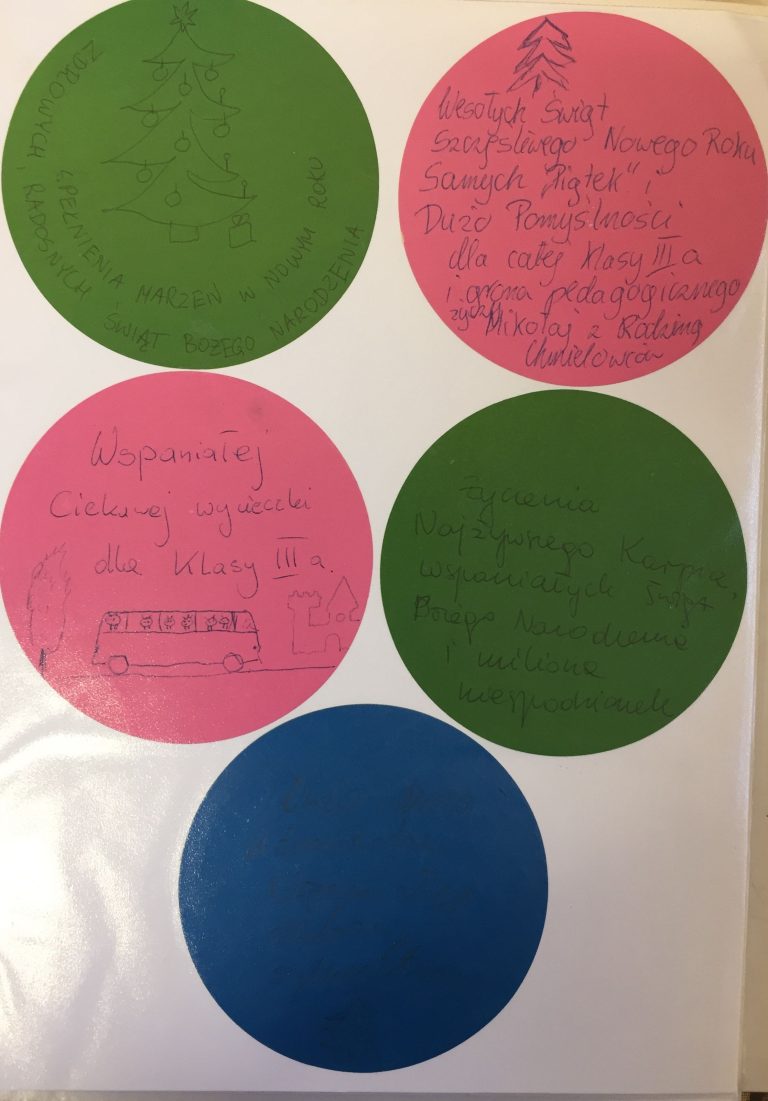 ZDROWYCH, RADOSNYCH ŚWIĄT BOŻEGO NARODZENIA
SPEŁNIENIA MARZEŃ W NOWYM ROKU
Wesołych Świąt
Szczęsliwego Nowego Roku
Samych "Piątek" i
Dużo Pomyślności
dla całej klasy III a
i grona pedagogicznego
życzy Mikołaj z Rodziną
Chmielowców
Wspaniałej
Ciekawej wycieczki
dla Klasy III a.
Życzenia
Najżywszego Karpia,
wspaniałych Świąt
Bożego Narodzenia
i miliona
niespodzianek